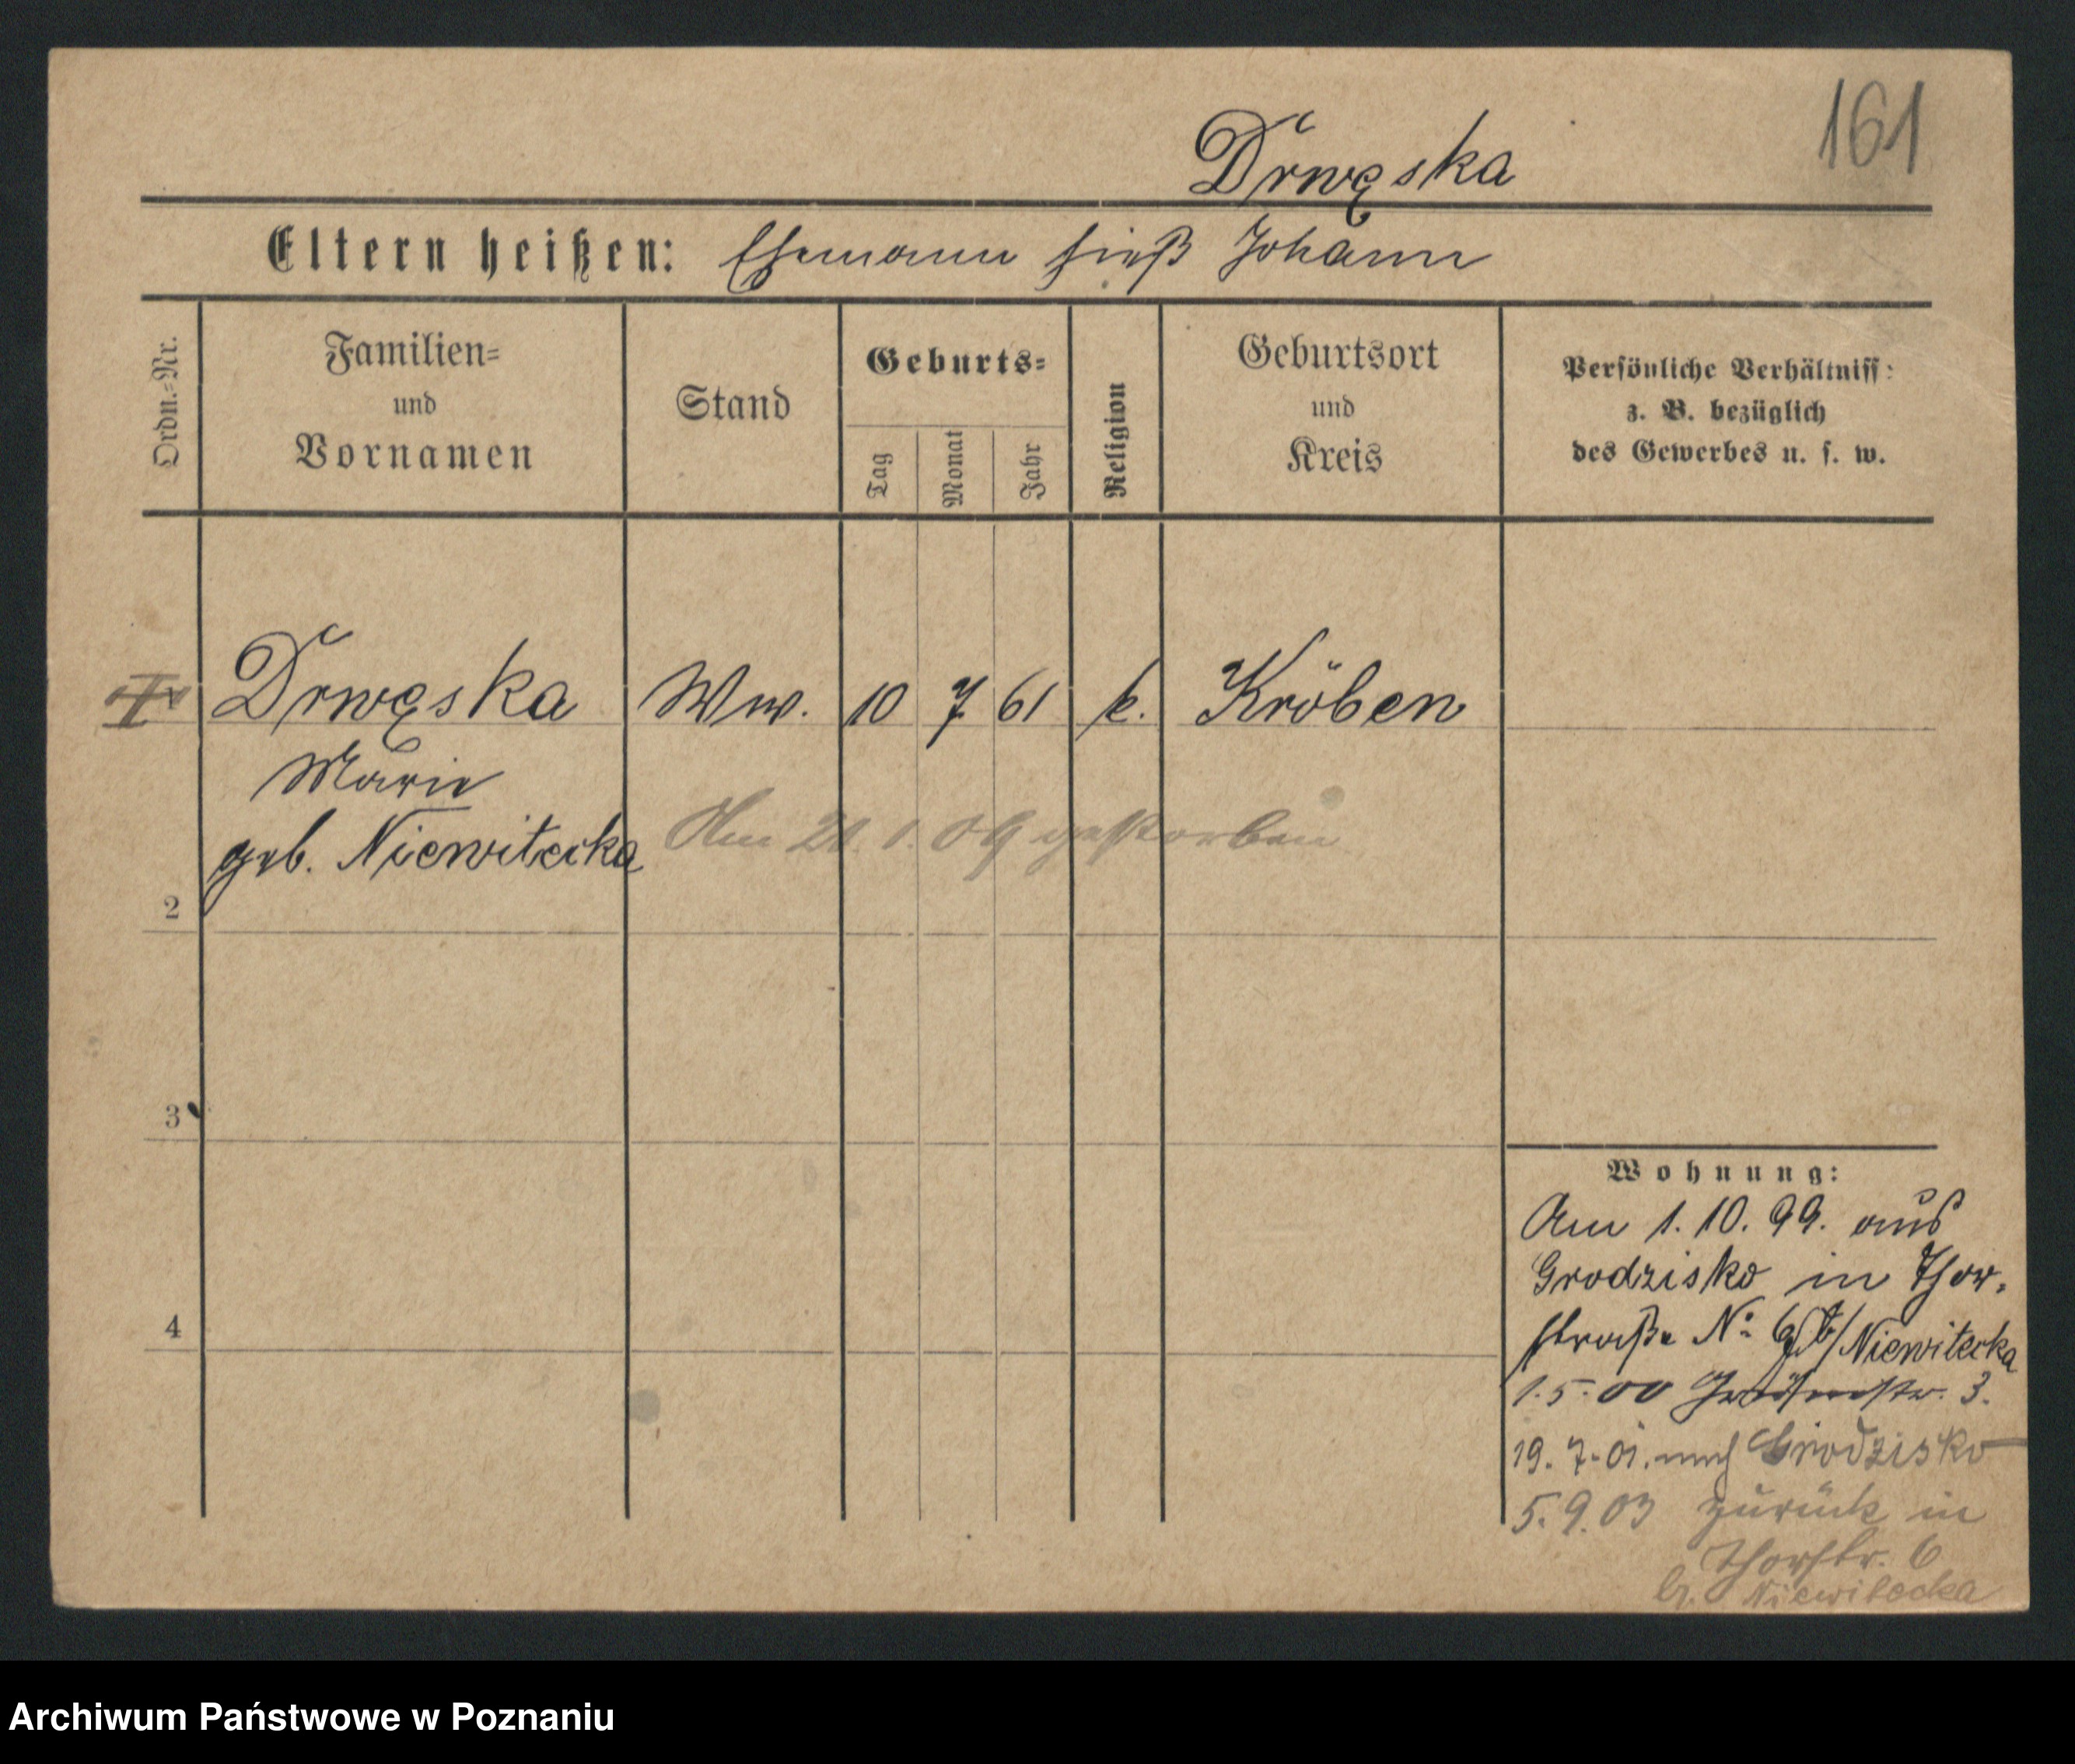 161
Drwęska
Eltern heißen: Ehemann hieß Johann
Ordn.-Nr.
Familien-
und
Vornamen
Stand
Geburts-
Tag
Monat
Jahr
Religion
Geburtsort
und
Kreis
Persönliche Verhältniss:
z. B. bezüglich
des Gewerbes u. s. w.
Drwęska Ww. 10 7 61 k. Kröben
Marie
geb. Niewitecka
Am 21. 1. 09 gestorben
2
3
4
Wohnung:
Am 1. 10. 99. aus
Grodzisko in Thor-
straße No 6 b/Niewitecka
1. 5. 00 3.
19. 7. 01. nach Grodzisko
5. 9. 03 zurück in
Thorstr. 6
b. Niewitecka
Archiwum Państwowe w Poznaniu